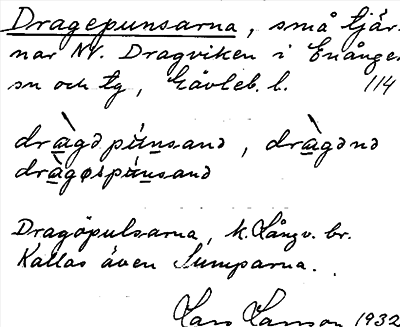 Dragepunsarna, små tjär-
nar NV. Dragviken i Enånger
sn och tg, Gävleb. l. 114
dràgəpúnsanə, dràgənə
dràgøspúnsanə
Dragöpulsarna, k. Långv. br.
Kallas även Sumparna.
Lars Larsson 1932